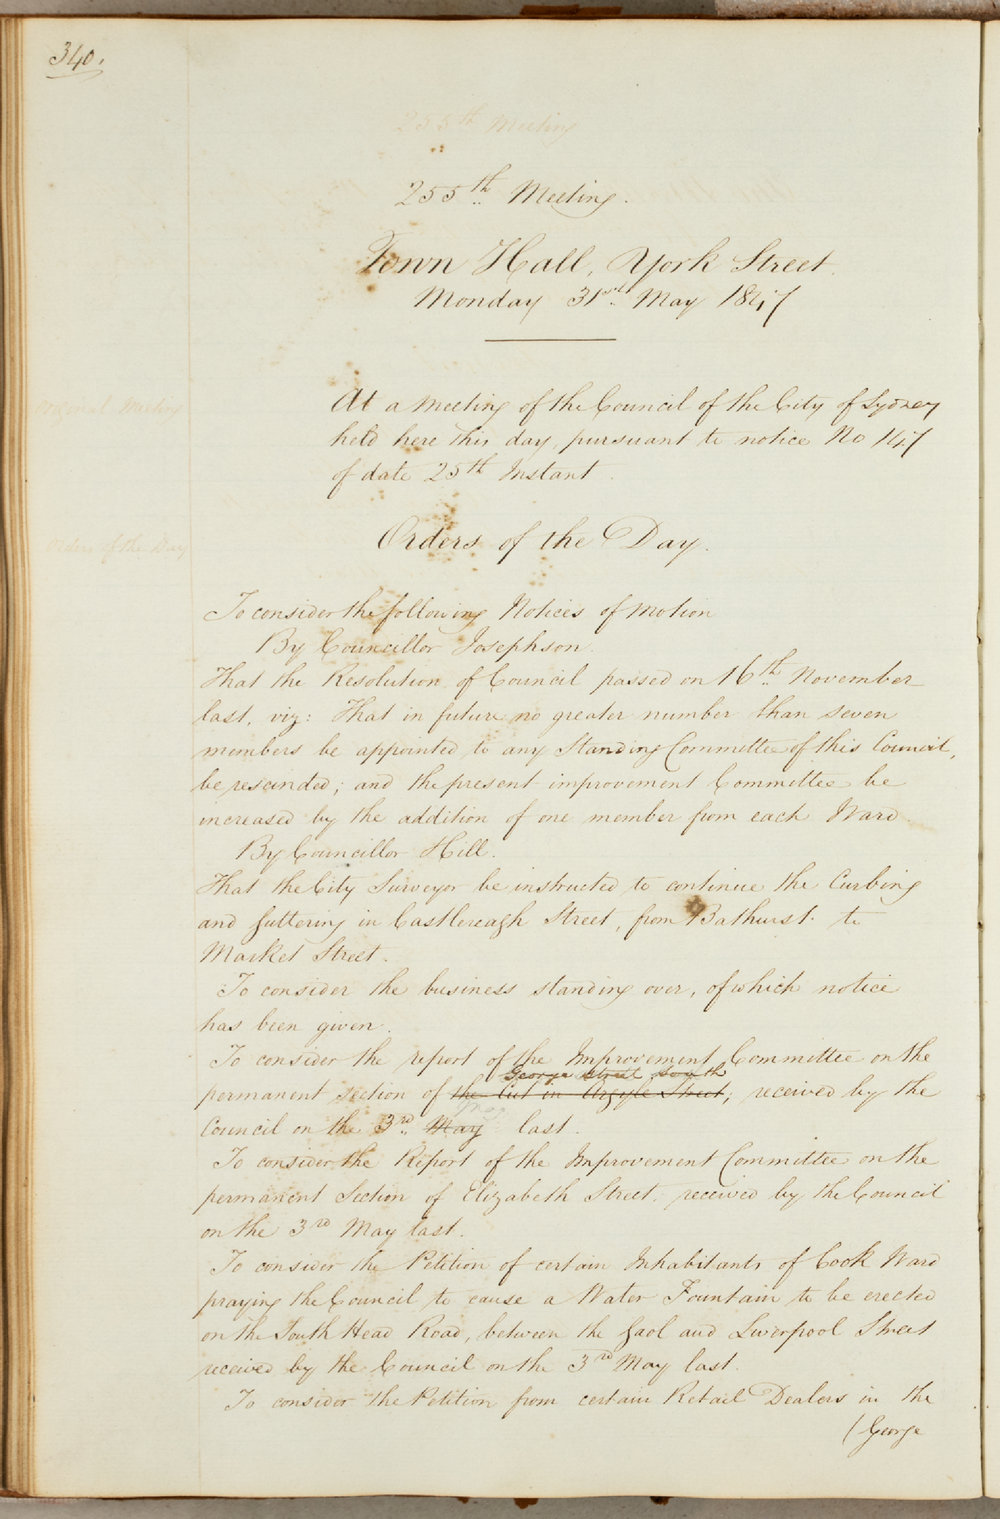 340.
255th Meeting
255th Meeting.
Town Hall, York Street.
Monday 31st May 1847
Ordinal Meeting
At a meeting of the Council of the City of Sydney
held here this day, pursuant to notice No 147
of date 25th Instant.
Orders of the Day
Orders of the Day.
To consider the following Notices of Motion
By Councillor Josephson.
That the Resolution of Council passed on 16th November
last, viz: That in future no greater number than seven
members be appointed to any Standing Committee of this Council,
be rescinded; and the present improvement Committee be
increased by the addition of one member from each Ward
By Councillor Hill.
That the City Surveyor be instructed to continue the Curbing
and guttering in Castlereagh Street, from Bathurst to
Market Street.
To consider the business standing over, of which notice
has been given.
To consider the report of the Improvement Committee on the
George Street South
permanent section of the Cut in Argyle Street; received by the
Council on the 3rd May last.
To consider the Report of the Improvement Committee on the
permanent Section of Elizabeth Street received by the Council
on the 3rd May last.
To consider the Petition of certain Inhabitants of Cook Ward
praying the Council to cause a Water Fountain to be erected
on the South Head Road, between the Gaol and Liverpool Street
received by the Council on the 3rd May last.
To consider the Petition from certain Retail Dealers in the
(George